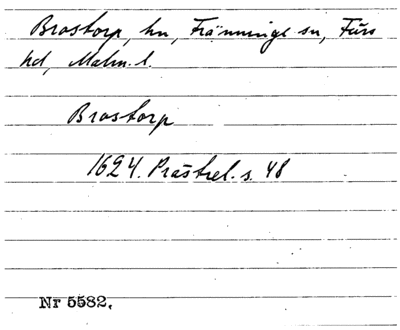 Brostorp, hn, Tränninge sn, Färs
hd, Malm. l.
Brostorp
1624. Prästrel. s. 48
Nr 5582.